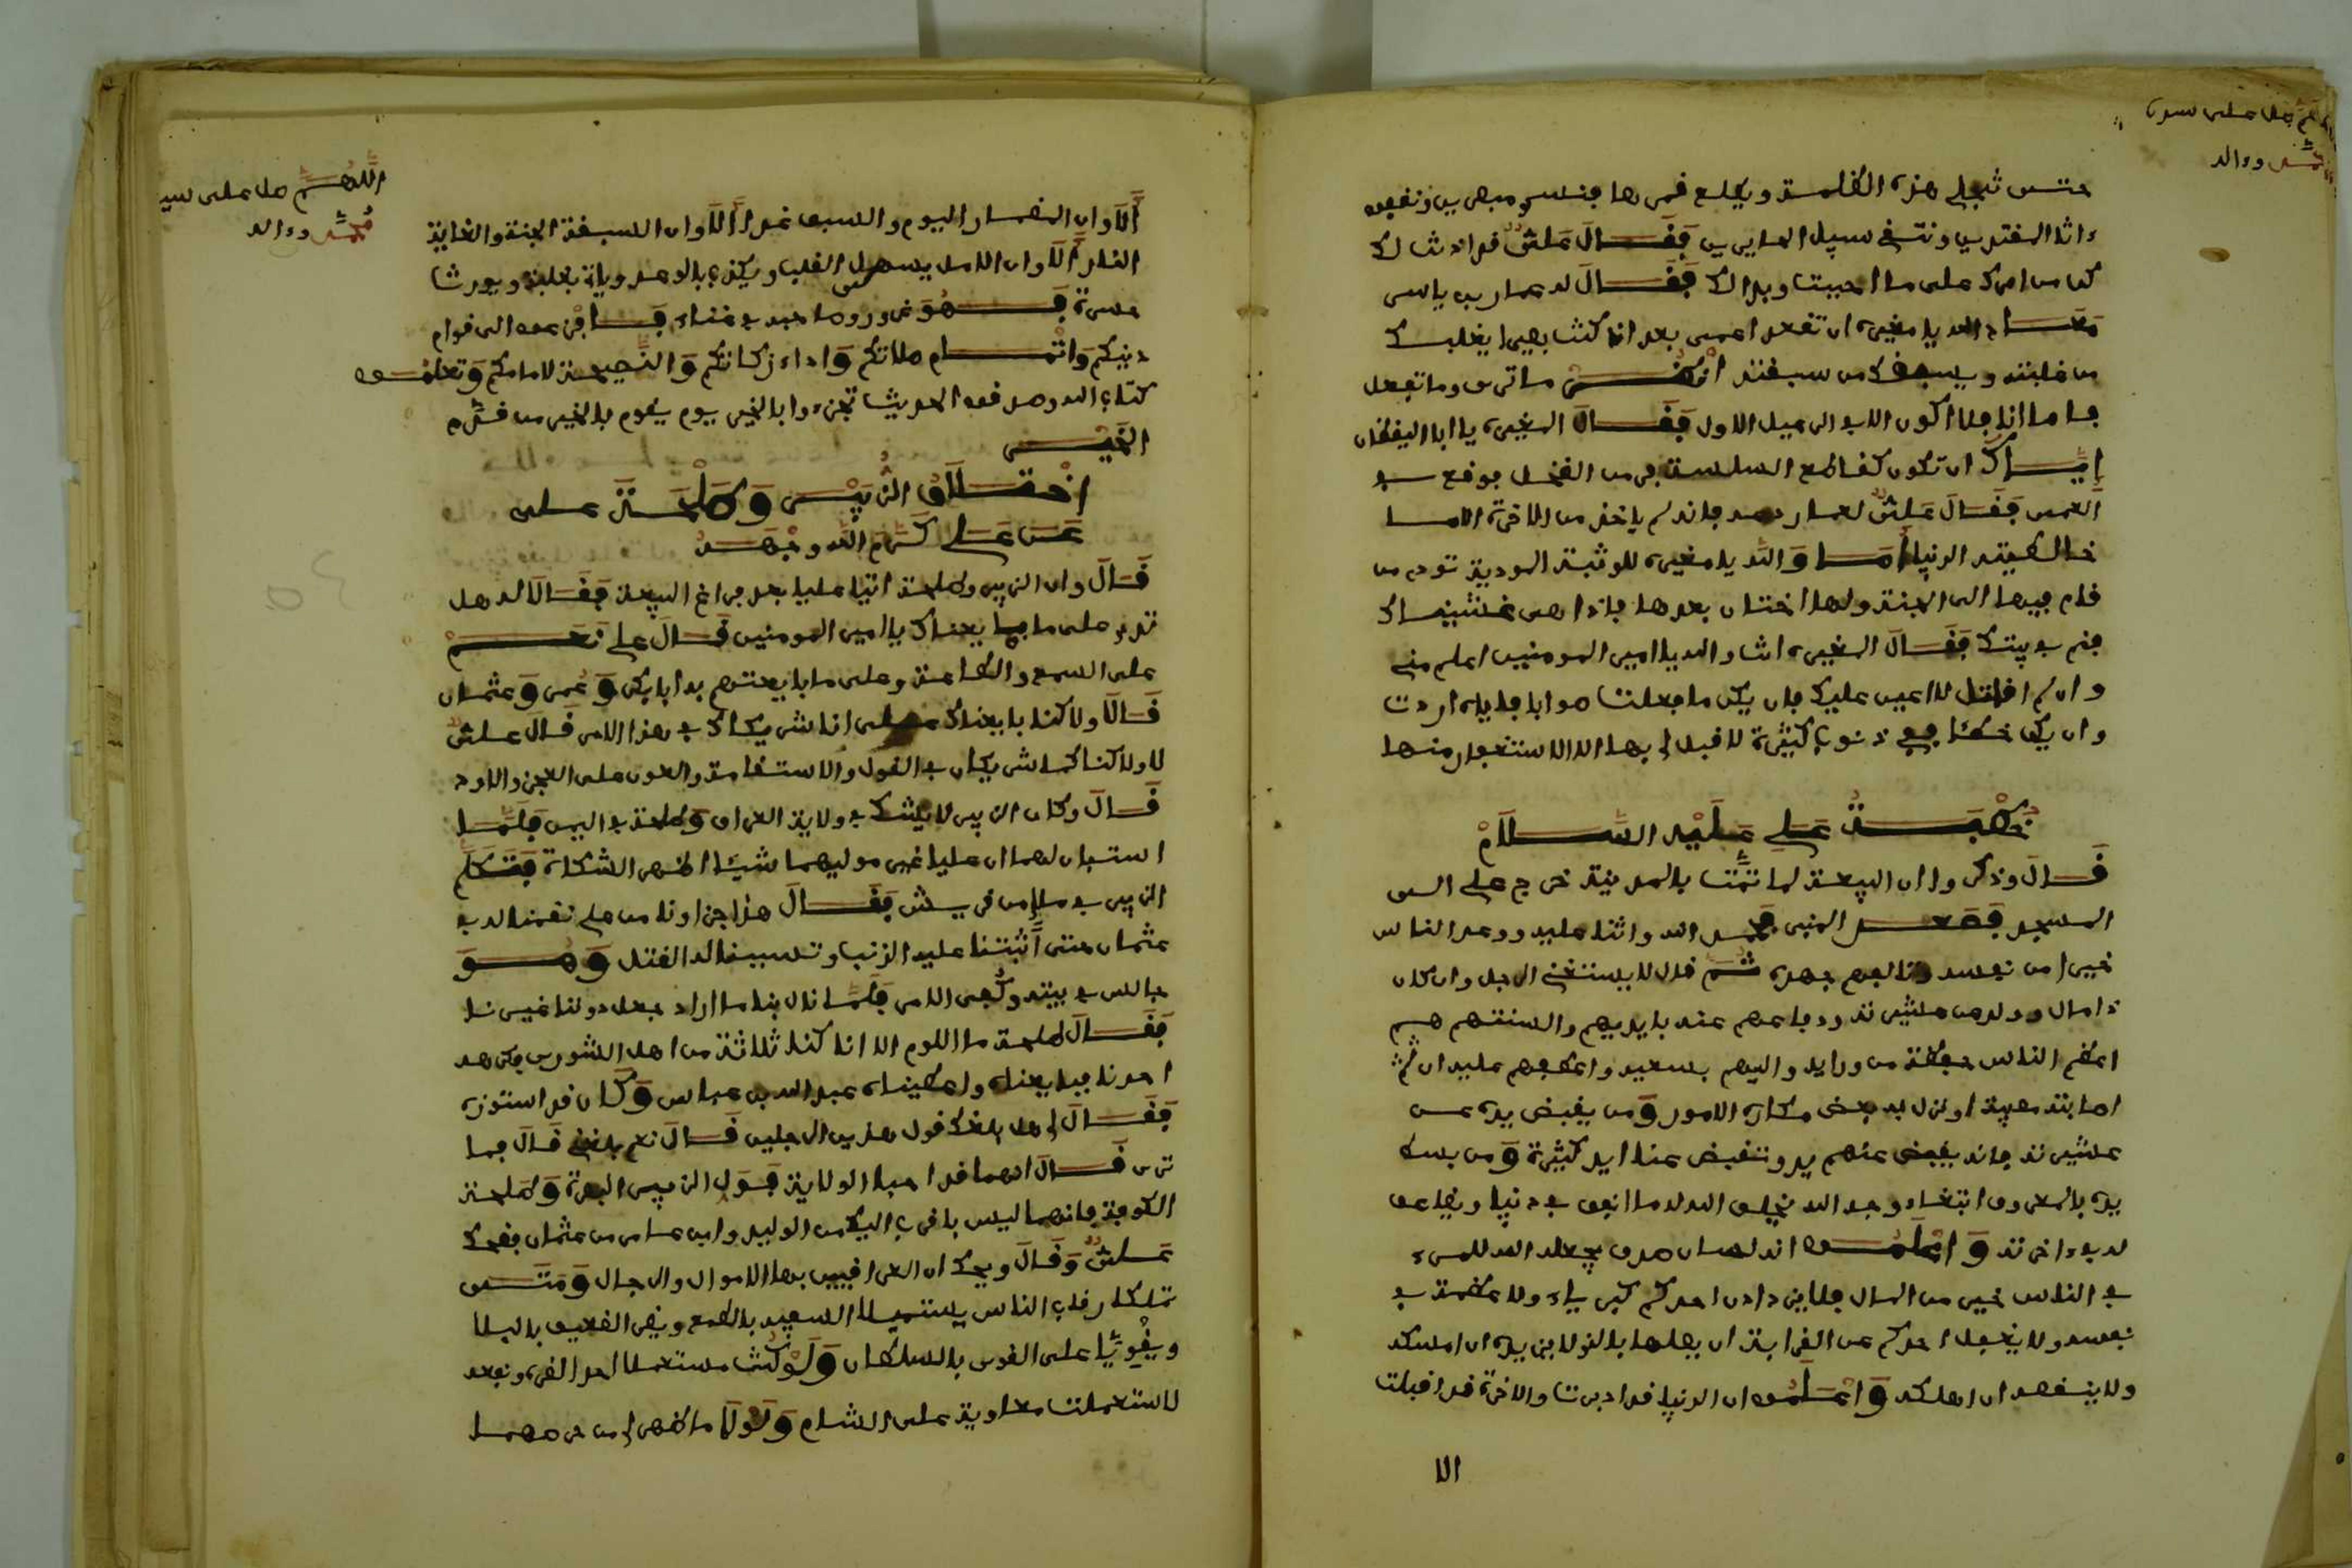 اللهم صل على سيدنا
محمد وءاله
حتى تنجلي هذه الظلمة ويطلع قمرها فنسري مبصرين ونقفوا
ءاثار المهتدين ونتقي سبيل الحايرين فَقَالَ عَلِيٌّ قد اذنت لك
كن من امرك على ما احببت وبدا لك فَقَالَ له عمار بن ياسر
مَعَاذ الله يا مغيرة ان تقعد اعمى بعد ان كنت بصيرا يغلبك
من غلبته ويسبقك من سبقته انْظُرْ ما ترى وما تفعل
فاما انا فلا اكون الا في الرعيل الاول فَقَالَ المغيرة يا ابا اليقظان
إِيَّاكَ ان تكون كقاطع السلسلة فر من الضحل فوقع في
الغمر فَقَالَ عَلِيٌّ لعمار دعه فانه لم ياخذ من الاخرة الا ما
خالطته الدنيا أَمَا وَاللَّه يا مغيرة للوثبة المودية تودي من
قام فيها الى الجنة ولها اختان بعدها فاذا هي غشيناك
فنم في بيتك فَقَالَ المغيرة انت والله يا امير المومنين اعلم مني
وان لم اقاتل لا اعين عليك فان يكن ما فعلت صوابا فاياه اردت
وان يكن خطئا فمع ذنوب كثيرة لا قبل لي بها الا الاستغفار منها
خُطْبَةُ عَلِي عَلَيْهِ السَّلَامْ
قَالَ وذكروا ان البيعة لما تمّت بالمدينة خرج علي الى
المسجد فَصَعد المنبر فحمد الله واثنا عليه ووعد الناس
خيرا من نفسه وتالفهم جهده ثُمَّ قال لا يستغني الرجل وان كان
ذا مال وولد عن عشيرته ودفاعهم عنه بايديهم والسنتهم هم
اعظم الناس حيطة من ورايه واليهم بسعيه واعطفهم عليه ان
اصابته مصيبة او نزل به بعض مكاره الامور وَمن يقبض يده عن
عشيرته فانه يقبض عنهم يد وتقبض عنه ايد كثيرة وَمن بسط
يده بالمعروف ابتغاء وجه الله يخلف الله له ما انفق في دنياه ويضاعف
له في ءاخرته وَاعْلَمُوا ان لسان صدق يجعله الله للمرء
في الناس خير من المال فلا يزدادن احدكم كبرياء ولا عظمة في
نفسه ولا يغفل احدكم عن القرابة ان يصلها بالذي لا يزيده ان امسكه
ولا ينقصه ان اهلكه وَاعْلَمُوا ان الدنيا قد ادبرت والاخرة قد اقبلت
الا
اللَّهُمَّ صل على سيد
مُحمَّد وءاله
أَلَا وان المضمار اليوم والسبق غدا أَلَا وان السبقة الجنة والغاية
النار أَلَا وان الامل يسهي القلب ويكذب بالوعد وياتي بغلبة ويورث
حسرة فَهُوَ غرور وصاحبه في عناء فَافْزعوا الى قوام
دينكم وَاتْمَام صلاتكم وَاداء زكاتكم وَالنَّصِيحة لامامكم وَتعلمُوا
كتاب الله وصدقوا الحديث
الخَيْر
اخْتِلَافُ الزُّبَيْر وَطَلْحَةَ على
عَلي كَرَّمَ اللَّه وجْهَهُ
قَالَ وان الزبير وطلحة اتيا عليا بعد فراغ البيعة فَقَالَا له هل
تدري على ما بايعناك يا امير المومنين قَالَ علي نَعَمْ
على السمع والطاعة وعلى ما بايعتم به ابا بكر وَعُمر وَعثمان
قَالَا ولاكنا بايعناك على انا شريكاك في هذا الامر قَالَ عليٌّ
لا ولاكنكما شريكان في القول والاستقامة والعون على العجز والاود
قَالَ وكان الزبير لا يشك في ولاية العراق وَطلحة في اليمن فَلَمَّا
استبان لهما ان عليا غير موليهما شيئا اظهر الشكاة فَتَكَلَّم
الزبير في ملإ من قريش فَقَالَ هذا جزاونا من علي قمنا له في
عثمان حتى أَثبتنا عليه الذنب وتسببنا له القتل وَهُوَ
جالس في بيته وكُفي الامر فَلَمَّا نال بنا ما اراد جعل دوننا غيرنا
فَقَالَ طلحة ما اللوم الا انا كنا ثلاثة من اهل الشورى فكرهه
احدنا فبايعناه واعطيناه عبد الله بن عباس وَكَان قد استوزره
فَقَالَ له هل بلغك قول هذين الرجلين قَالَ نعم بلغني قَالَ فما
ترى قَالَ انهما قد احبا الولاية فَوَل الزبير البصرة وَطَلحة
الكوفة فانهما ليس باقرب اليك من الوليد وابن عامر من عثمان فضحك
عَلِيٌّ وَقَالَ ويحك ان العراقيين بها الاموال والرجال وَمَتَى
تملكا رقاب الناس يستميلا السفيه بالطمع ويضر الضعيف بالبلا
ويقْوِيَا على القوي بالسلطان وَلَوْ كُنْت مستعملا احد الضره ونفعه
لاستعملت معاوية على الشام وَلَوْلَا ما ظهر لي من حرصهما